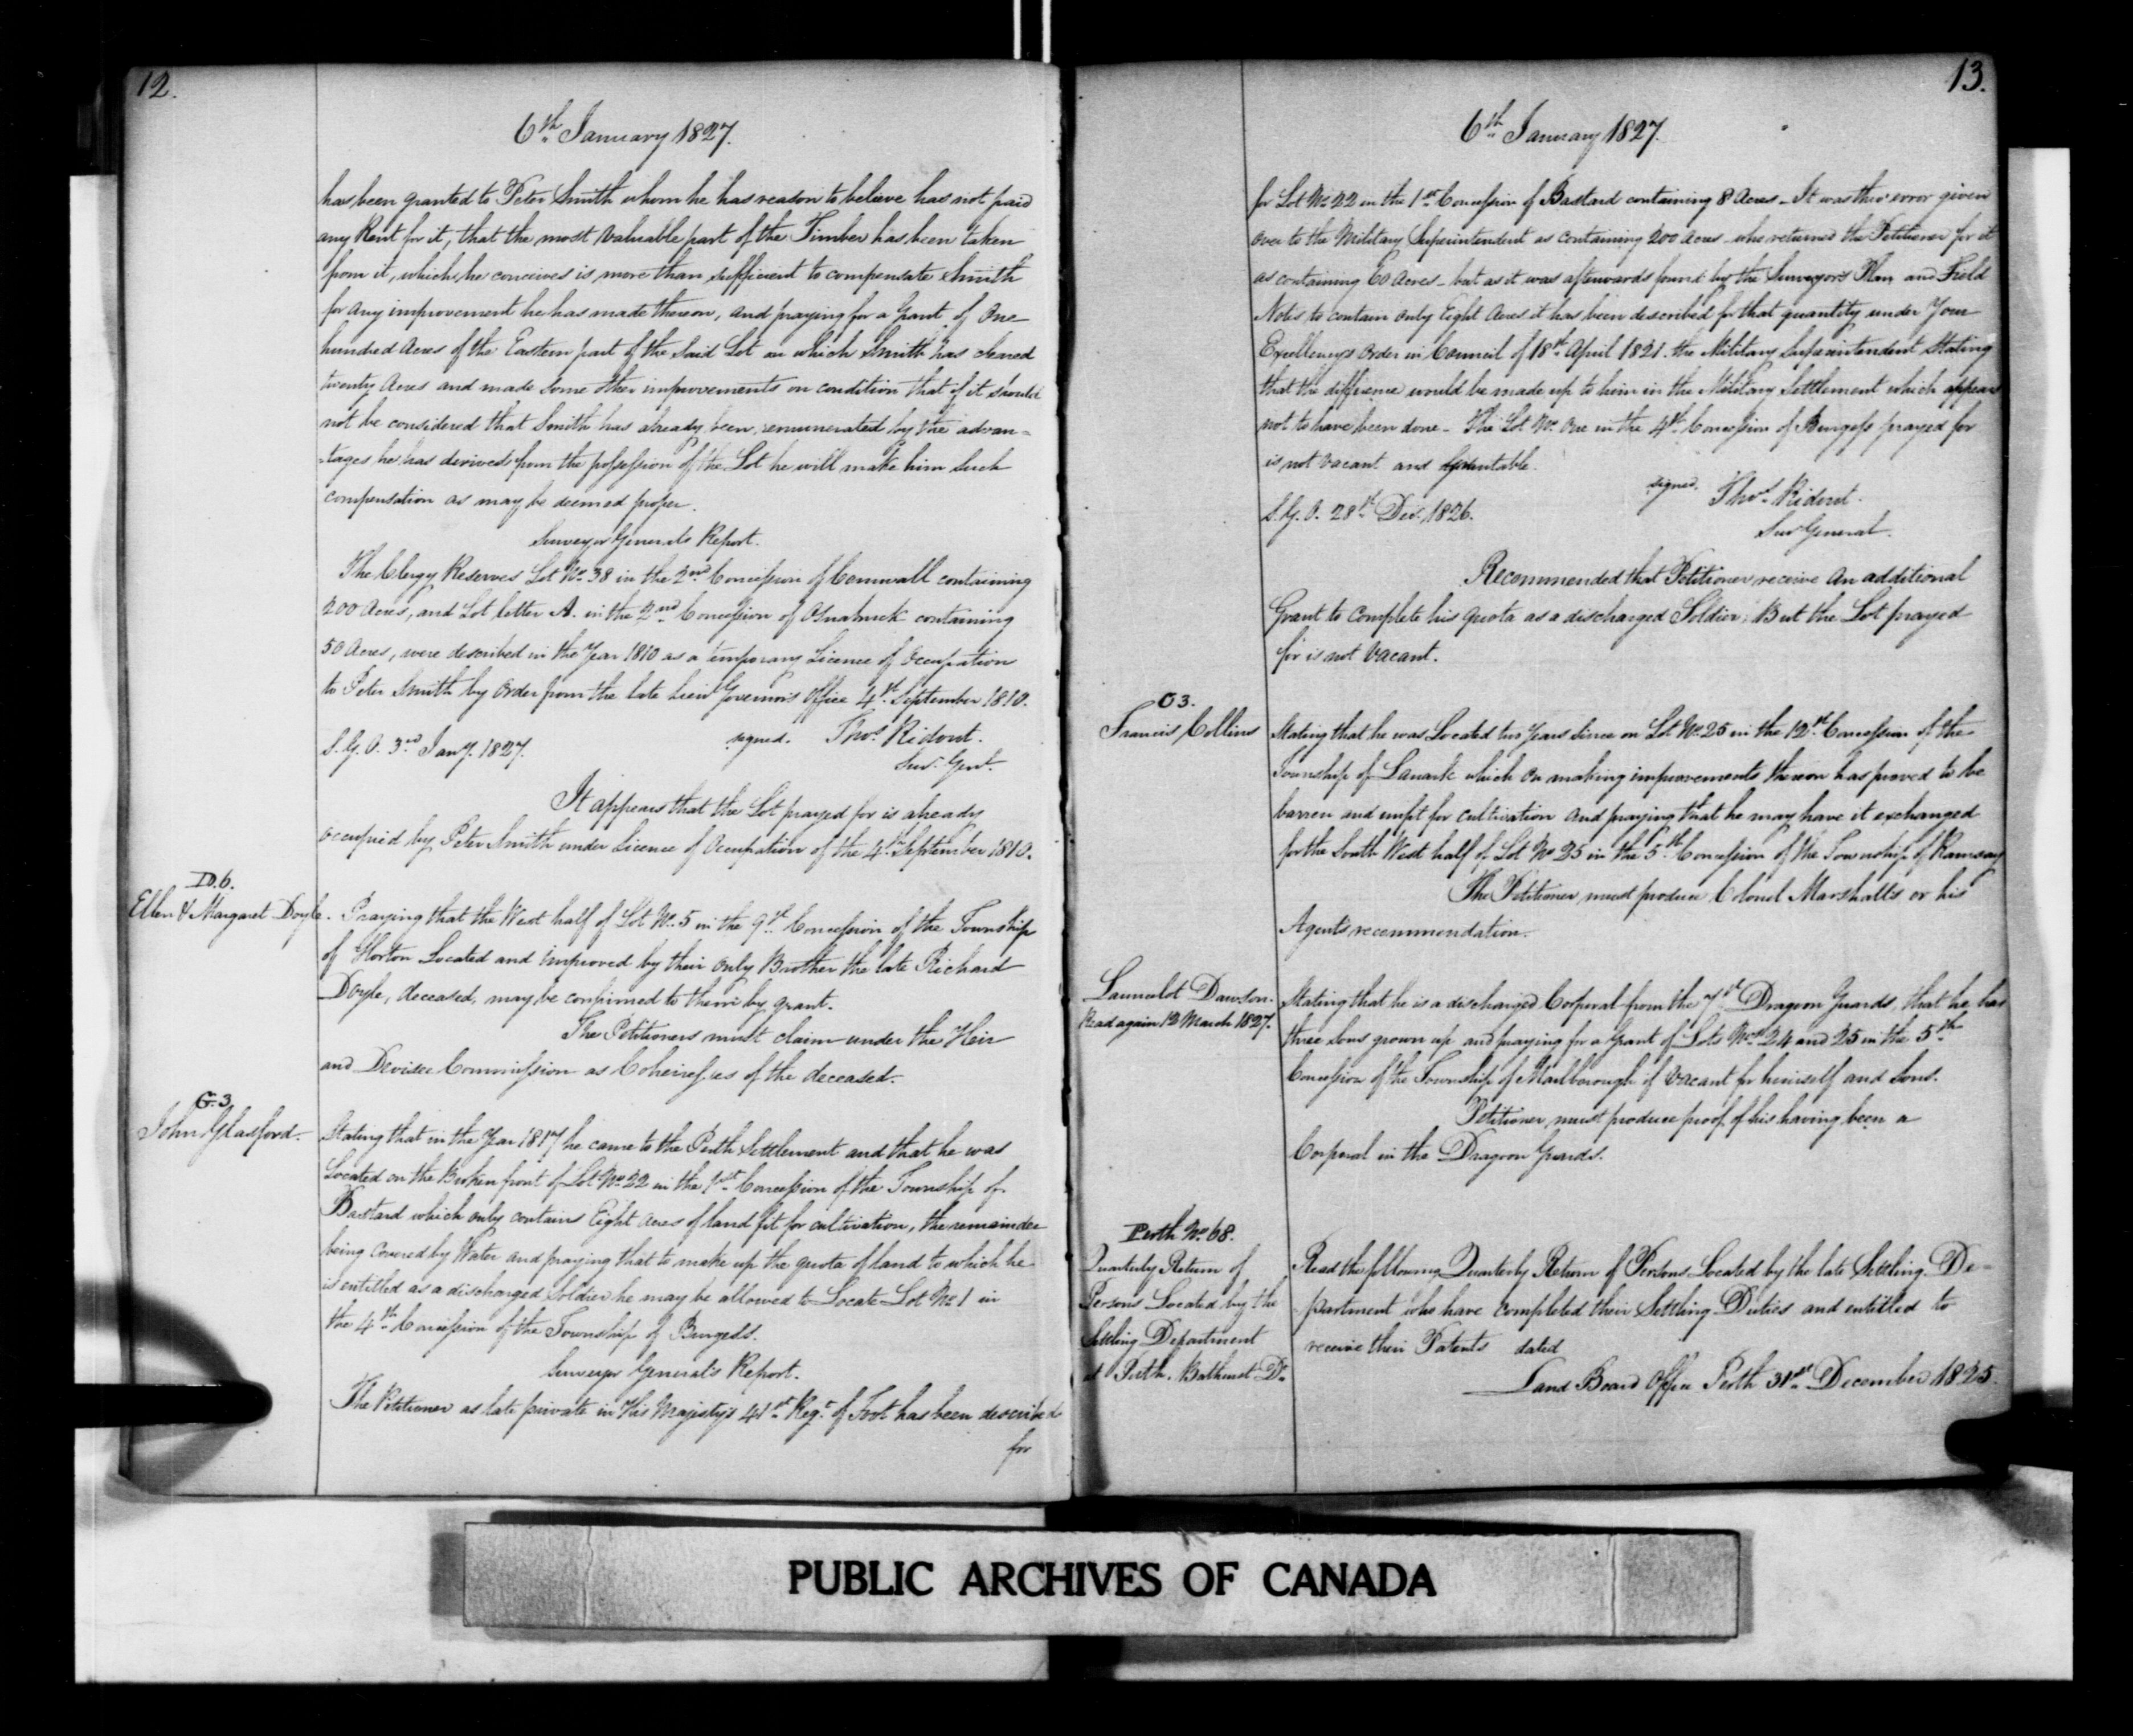 12.
6th January 1827.
has been granted to Peter Smith whom he has reason to believe has not paid
any Rent for it, that the most valuable part of the Timber has been taken
from it, which he conceives is more than sufficient to compensate Smith
for any improvement he has made thereon, and praying for a Grant of One
hundred Acres of the Eastern part of the said Lot on which Smith has cleared
twenty Acres and made some other improvements on condition that if it should
not be considered that Smith has already been remunerated by the advan=
=tages he has derived from the possession of the Lot he will make him such
compensation as may be deemed proper.
Surveyor Generals Report.
The Clergy Reserves Lot No. 38 in the 2nd Concession of Cornwall containing
200 Acres, and Lot letter A. in the 2nd Concession of Osnabruck containing
50 Acres, were described in the Year 1810 as a temporary Licence of Occupation
to Peter Smith by Order from the late Lieut Governors Office 4th September 1810.
S. G. O. 3rd Jany. 1827. signed. Thos. Ridout.
Sur. Genl.
It appears that the Lot prayed for is already
occupied by Peter Smith under Licence of Occupation of the 4th September 1810.
D. 6.
Ellen & Margaret Doyle. Praying that the West half of Lot No. 5 in the 9th Concession of the Township
of Horton Located and improved by their only Brother the late Richard
Doyle, deceased, may be confirmed to them by grant.
The Petitioners must claim under the Heir
and Devisee Commission as Coheiresses of the deceased.
G. 3.
John Glasford. Stating that in the Year 1817 he came to the Perth Settlement and that he was
Located on the Broken front of Lot No 22 in the 1st Concession of the Township of
Bastard which only contains Eight Acres of land fit for cultivation, the remainder
being Covered by Water and praying that to make up the quota of land to which he
is entitled as a discharged Soldier he may be allowed to Locate Lot No. 1 in
the 4th Concession of the Township of Burgess.
Surveyor General's Report.
The Petitioner as late private in His Majesty's 41st Regt. of Foot has been described
for
13.
6th January 1827.
for Lot No 22 in the 1st Concession of Bastard containing 8 Acres - It was thro' error given
over to the Military Superintendent as containing 200 Acres - who returned the Petitioner for it
as containing 60 Acres - but as it was afterwards found by the Surveyors Plan and Field
Notes to contain only Eight Acres it has been described for that quantity under Your
Excellency's Order in Council of 18th April 1821. the Military Superintendent Stating
that the difference would be made up to him in the Military Settlement which appears
not to have been done - The Lot No. One in the 4th Concession of Burgess prayed for
is not vacant and grantable.
signed. Thos. Ridout.
S. G. O. 28th Dec. 1826.
Sur General.
Recommended that Petitioner receive an additional
Grant to complete his quota as a discharged Soldier; But the Lot prayed
for is not Vacant.
C 3.
Francis Collins Stating that he was Located two Years since on Lot No 25 in the 12th Concession of the
Township of Lanark which on making improvements thereon has proved to be
barren and unfit for cultivation and praying that he may have it exchanged
for the South West half of Lot No 25 in the 5th Concession of the Township of Ramsay
The Petitioner must produce Colonel Marshall's or his
Agents recommendation.
Launcelot Dawson. Stating that he is a discharged Corporal from the 7th Dragoon Guards, that he has
Read again 12 March 1827. three Sons grown up and praying for a Grant of Lots Nos. 24 and 25 in the 5th
Concession of the Township of Marlborough if vacant for himself and Sons.
Petitioner must produce proof of his having been a
Corporal in the Dragoon Guards.
Perth No. 68.
Quarterly Return of
Persons Located by the
Settling Department
at Perth. Bathurst Dt.
Read the following Quarterly Return of Persons Located by the late Settling De=
partment who have completed their Settling Duties and entitled to
receive their Patents dated
Land Board Office Perth 31st December 1825.
PUBLIC ARCHIVES OF CANADA